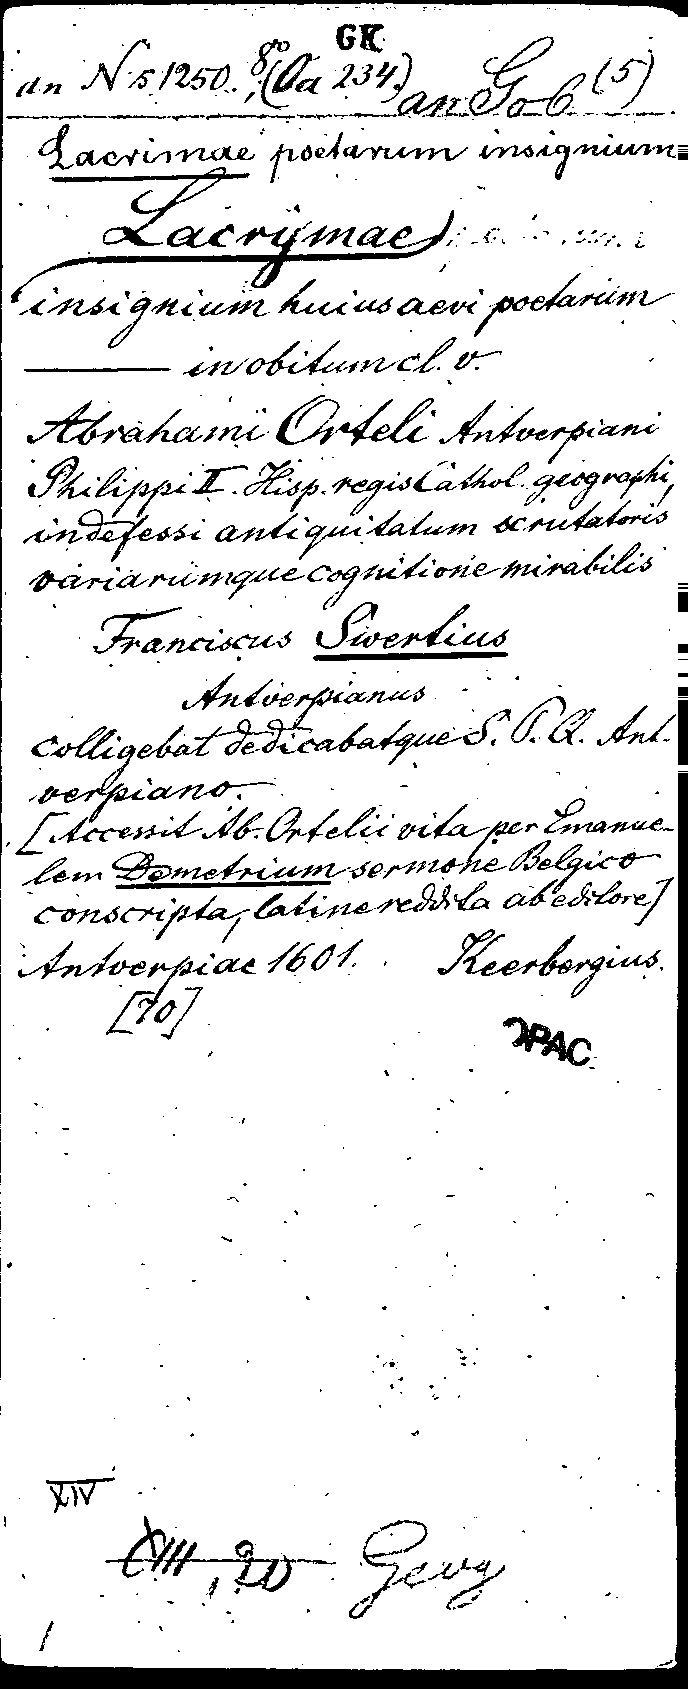 GK
an N 51250. 8º, (Oa 234.) an Go 6 (5)
Lacrimae poetarum insignium
Lacrymae
insignium huius aevi poetarum
in obitum cl. v.
Abrahami Orteli Antverpiani
Philippi II. Hisp. regis Cathol. geographi,
indefessi antiquitatum scrutatoris
variarumque cognitione mirabilis
Franciscus Swertius
Antverpianus
colligebat dedicabatque S. P. Q. Ant-
verpiano.
[Accessit Ab. Ortelii vita per Emanue-
lem Demetrium sermone Belgico
conscripta, latine reddita ab editore]
Antverpiae 1601. Keerbergius.
[70]
OPAC
XIV
XIII, 20 Geog
1